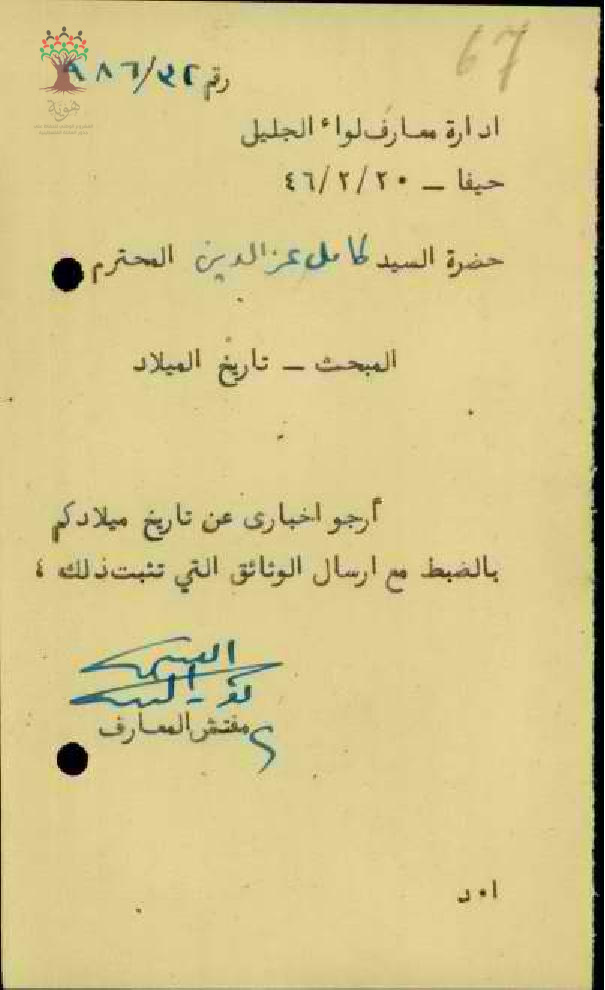 67
رقم ٩٨٦/٣٢
ادارة معارف لواء الجليل
حيفا – ٤٦/٢/٢٠
حضرة السيد كامل عز الدين المحترم
المبحث – تاريخ الميلاد
أرجو اخبارى عن تاريخ ميلادكم
بالضبط مع ارسال الوثائق التي تثبت ذلك ،
مفتش المعارف
هوية